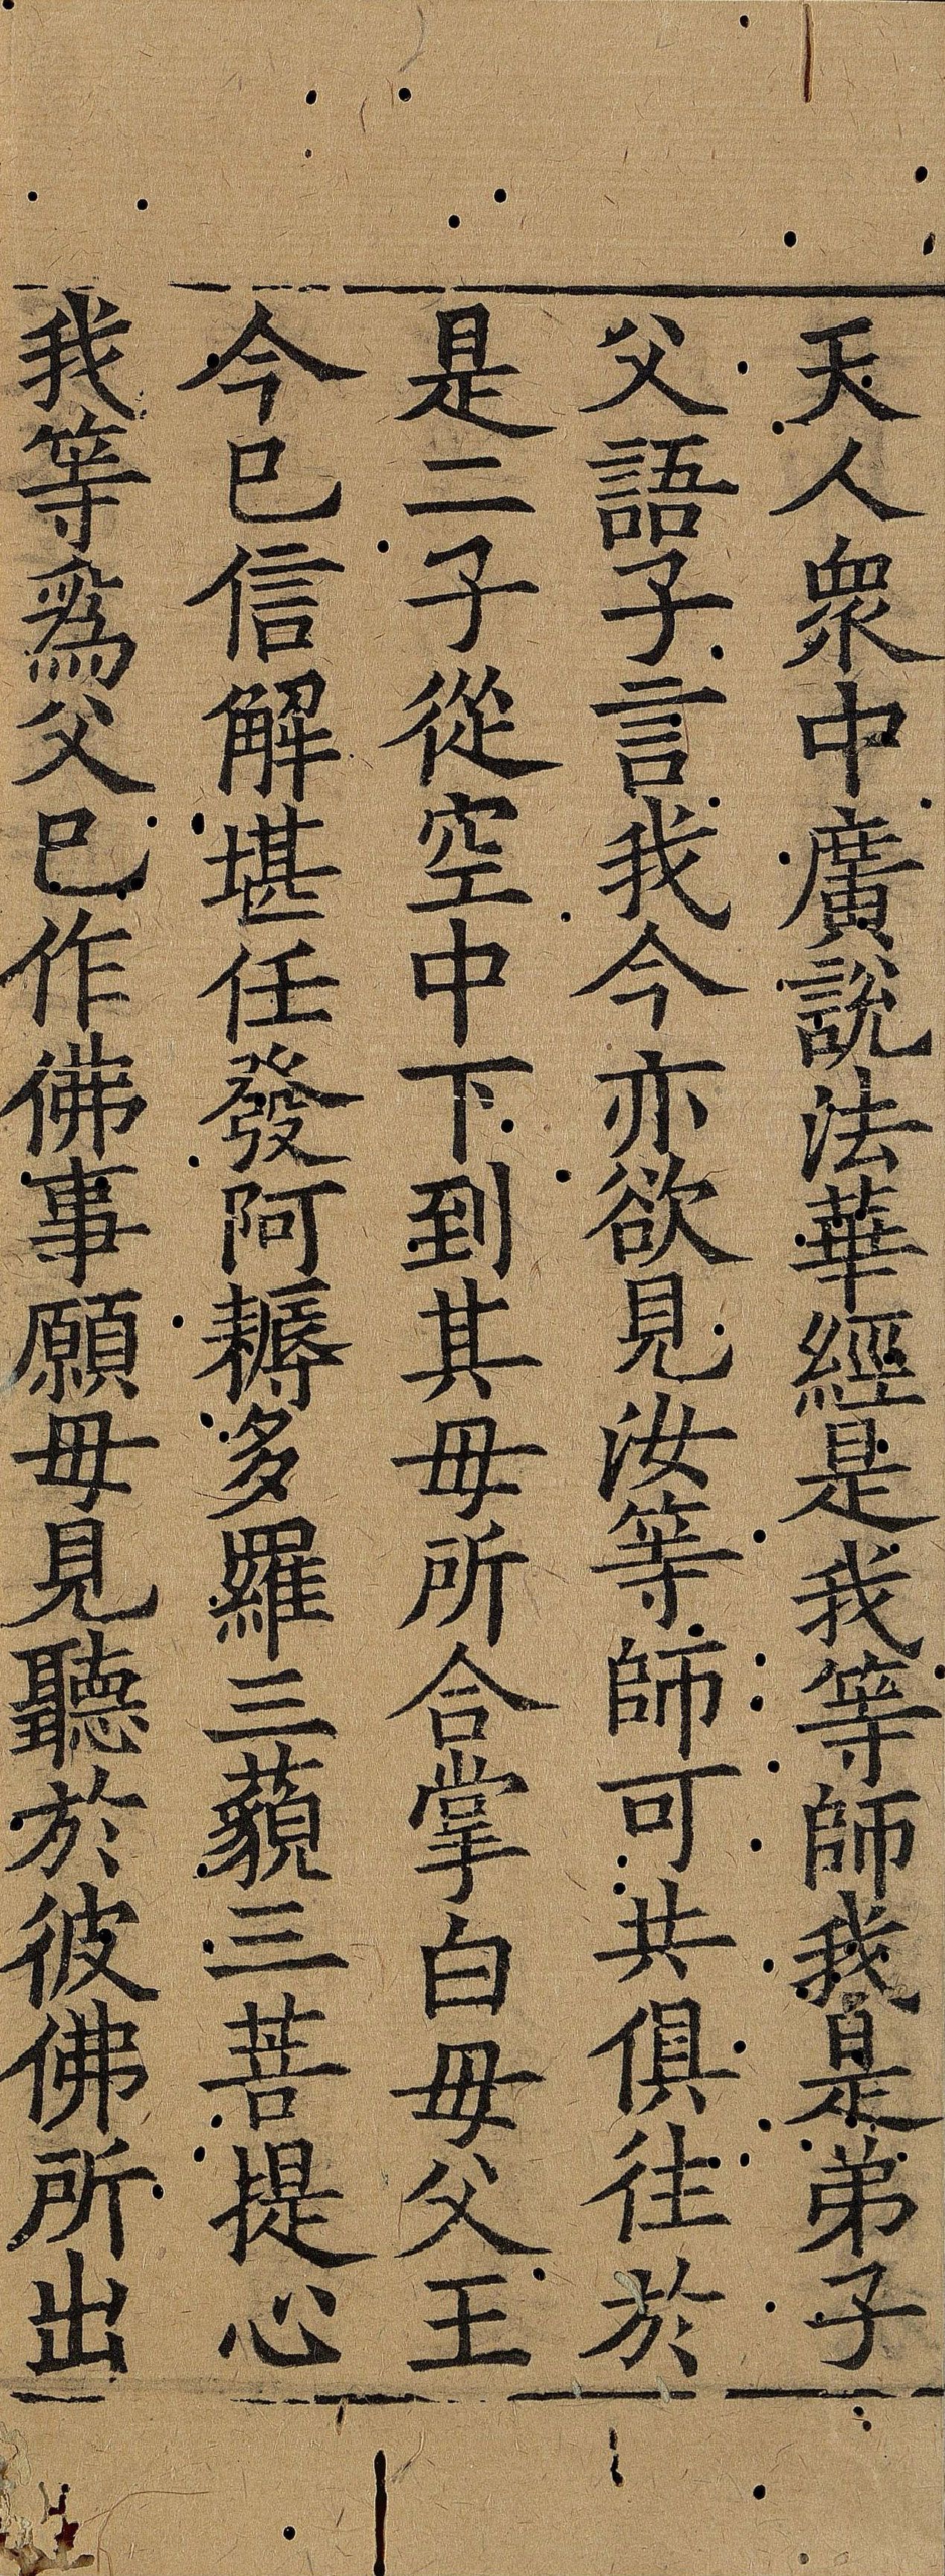 天人衆中廣說法華經是我等師我是弟子
父語子言我今亦欲見汝等師可共俱往於
是二子從空中下到其母所合掌白母父王
今已信解堪任發阿耨多羅三藐三菩提心
我等爲父已作佛事願母見聽於彼佛所出